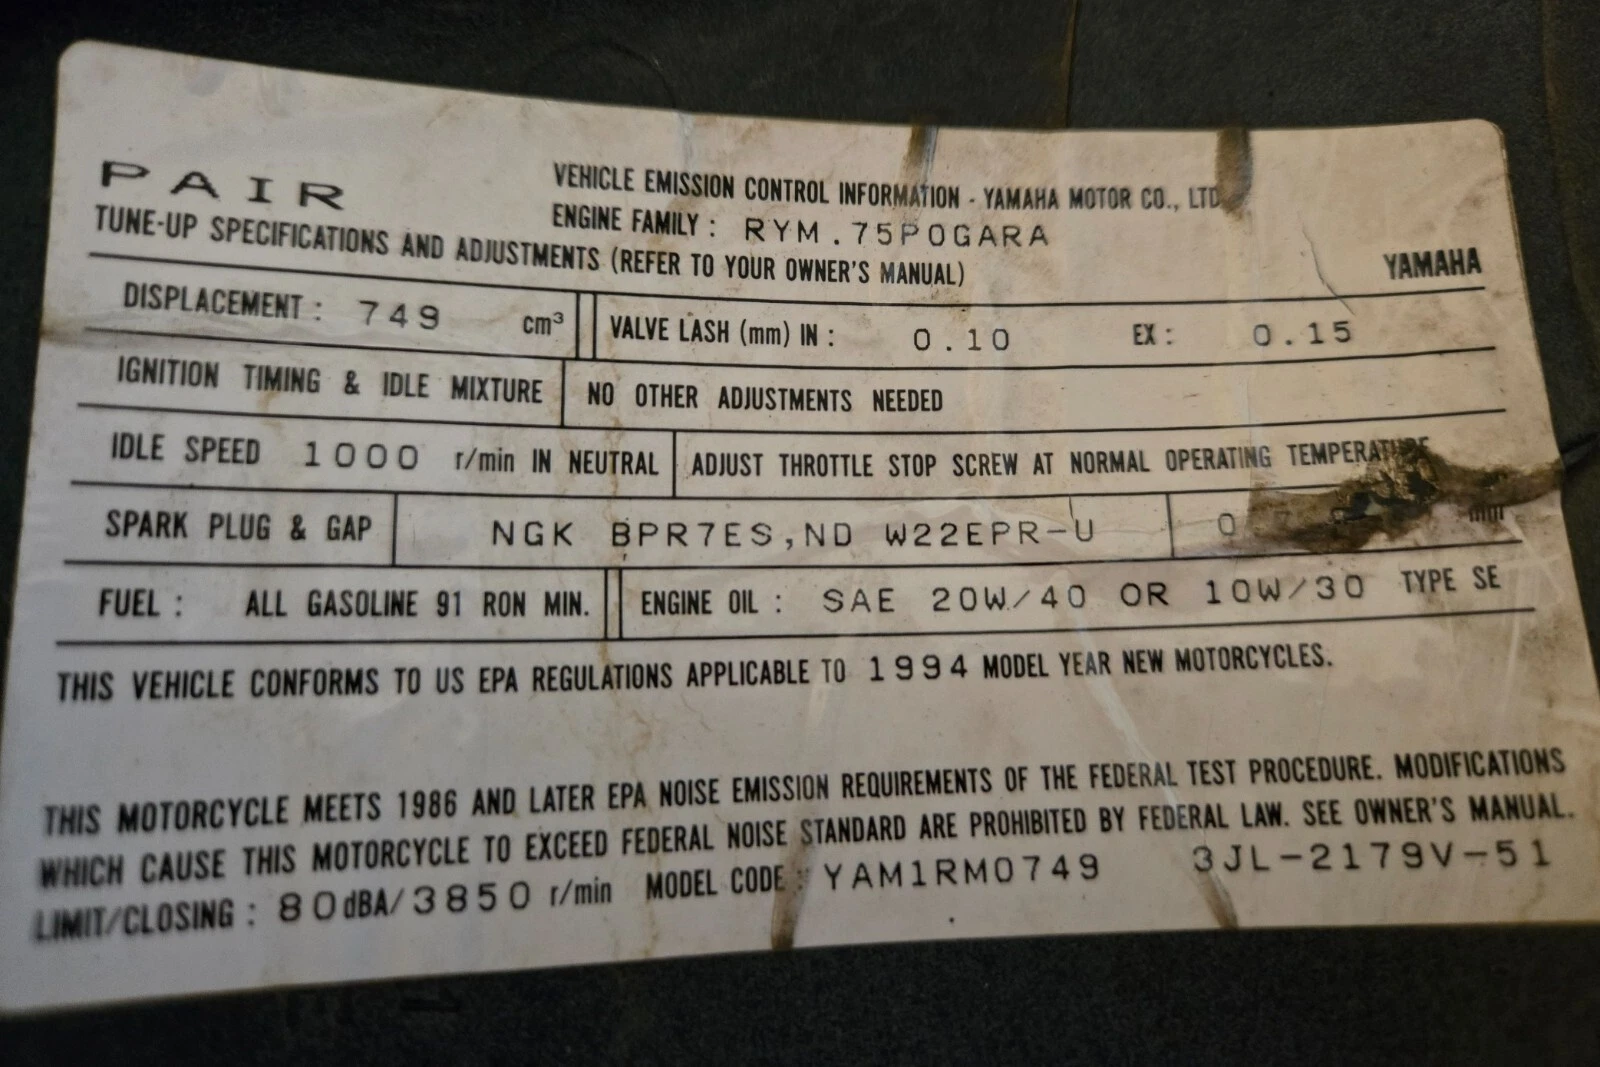 PAIR
VEHICLE EMISSION CONTROL INFORMATION - YAMAHA MOTOR CO., LTD
ENGINE FAMILY : RYM.75P0GARA
TUNE-UP SPECIFICATIONS AND ADJUSTMENTS (REFER TO YOUR OWNER'S MANUAL)
YAMAHA
DISPLACEMENT : 749 cm³ VALVE LASH (mm) IN : 0.10 EX : 0.15
IGNITION TIMING & IDLE MIXTURE NO OTHER ADJUSTMENTS NEEDED
IDLE SPEED 1000 r/min IN NEUTRAL ADJUST THROTTLE STOP SCREW AT NORMAL OPERATING TEMPERATURE
SPARK PLUG & GAP NGK BPR7ES,ND W22EPR-U mm
FUEL : ALL GASOLINE 91 RON MIN. ENGINE OIL : SAE 20W/40 OR 10W/30 TYPE SE
THIS VEHICLE CONFORMS TO US EPA REGULATIONS APPLICABLE TO 1994 MODEL YEAR NEW MOTORCYCLES.
THIS MOTORCYCLE MEETS 1986 AND LATER EPA NOISE EMISSION REQUIREMENTS OF THE FEDERAL TEST PROCEDURE. MODIFICATIONS
WHICH CAUSE THIS MOTORCYCLE TO EXCEED FEDERAL NOISE STANDARD ARE PROHIBITED BY FEDERAL LAW. SEE OWNER'S MANUAL.
LIMIT/CLOSING : 80dBA/3850 r/min MODEL CODE : YAM1RM0749 3JL-2179V-51